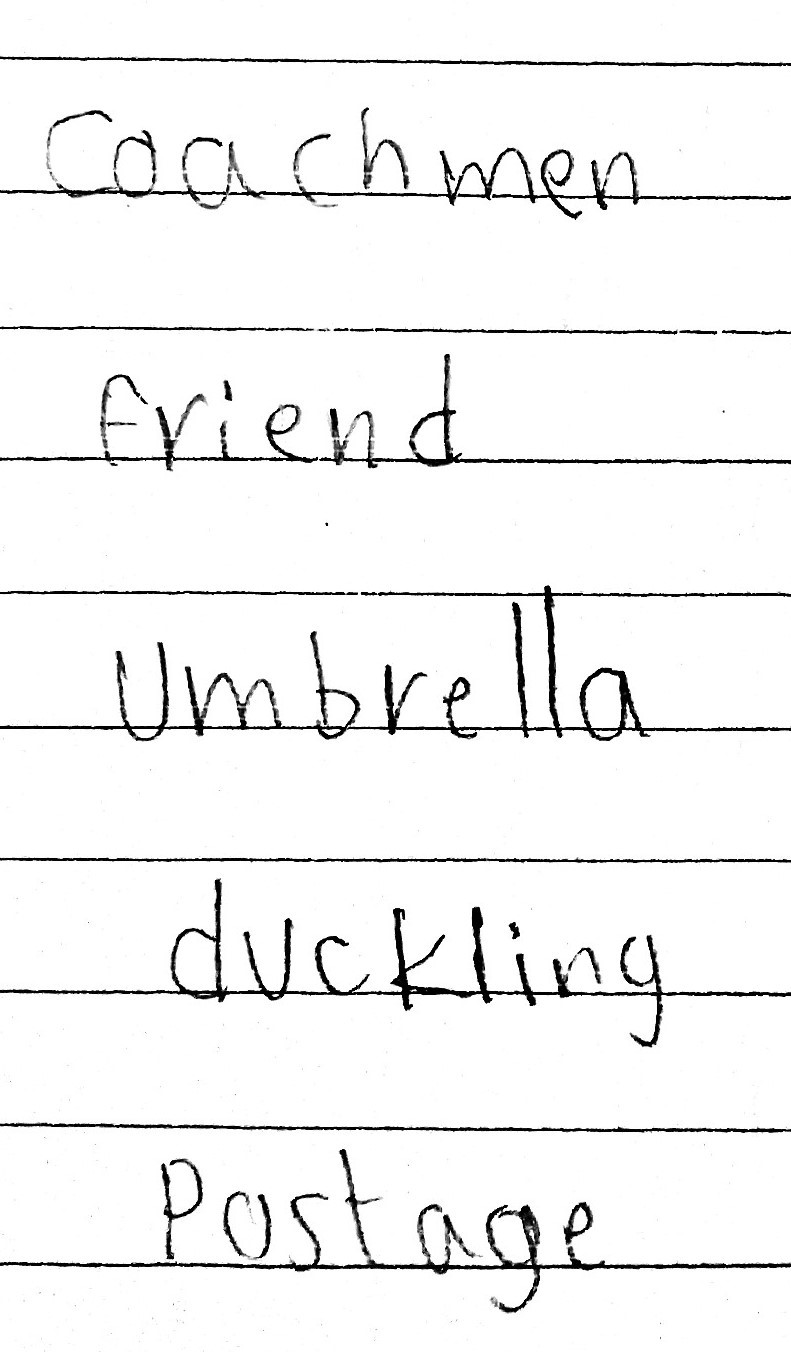 Coachmen
friend
Umbrella
duckling
Postage